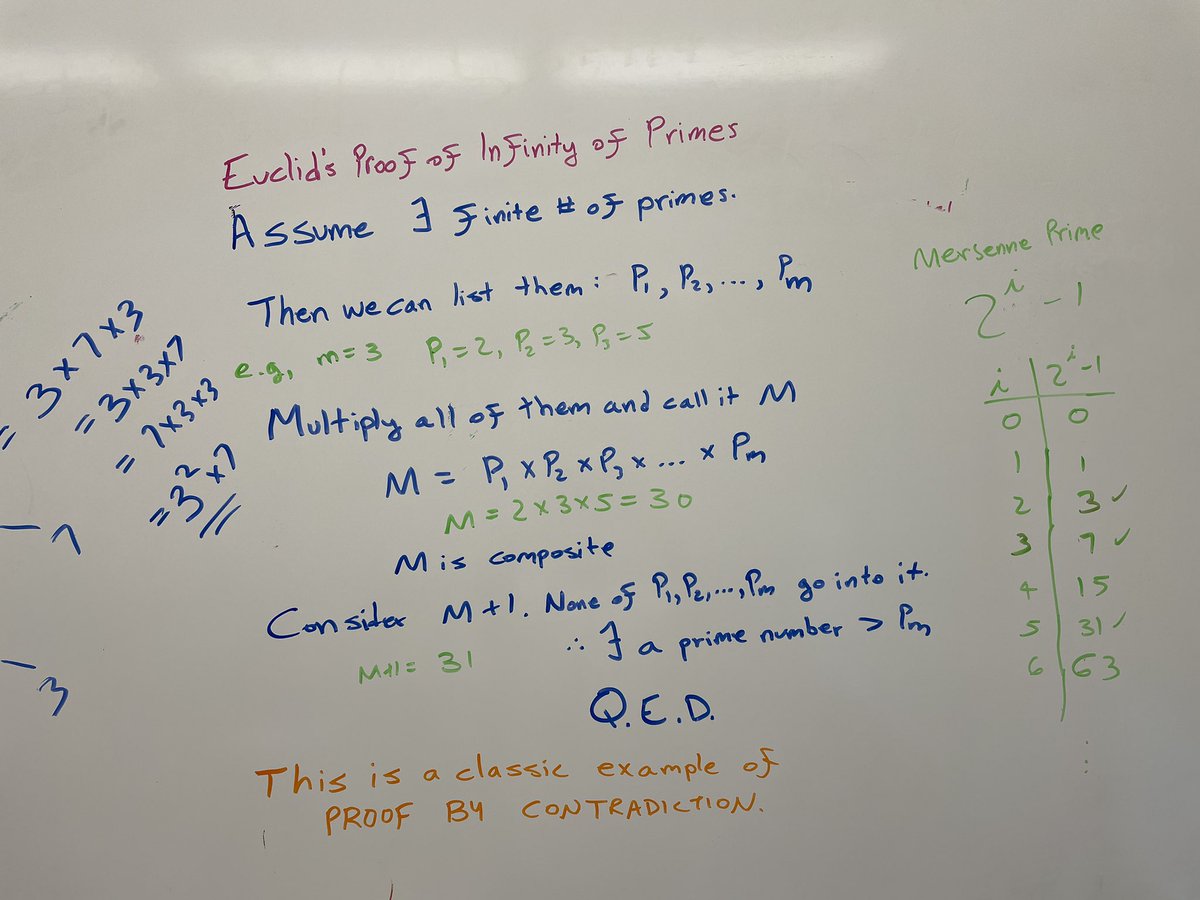 Euclid's Proof of Infinity of Primes
Assume ∃ finite # of primes.
Then we can list them: P₁, P₂, ..., Pm
e.g, m=3 P₁=2, P₂=3, P₃=5
Multiply all of them and call it M
M = P₁ × P₂ × P₃ × ... × Pm
M = 2×3×5 = 30
M is composite
Consider M+1. None of P₁, P₂, ..., Pm go into it.
∴ ∃ a prime number > Pm
M+1 = 31
Q.E.D.
This is a classic example of
PROOF BY CONTRADICTION.
= 3×7×3
= 3×3×7
= 7×3×3
= 3²×7
7
3
Mersenne Prime
2ⁱ - 1
i | 2ⁱ-1
0 | 0
1 | 1
2 | 3 ✓
3 | 7 ✓
4 | 15
5 | 31 ✓
6 | 63
⋮